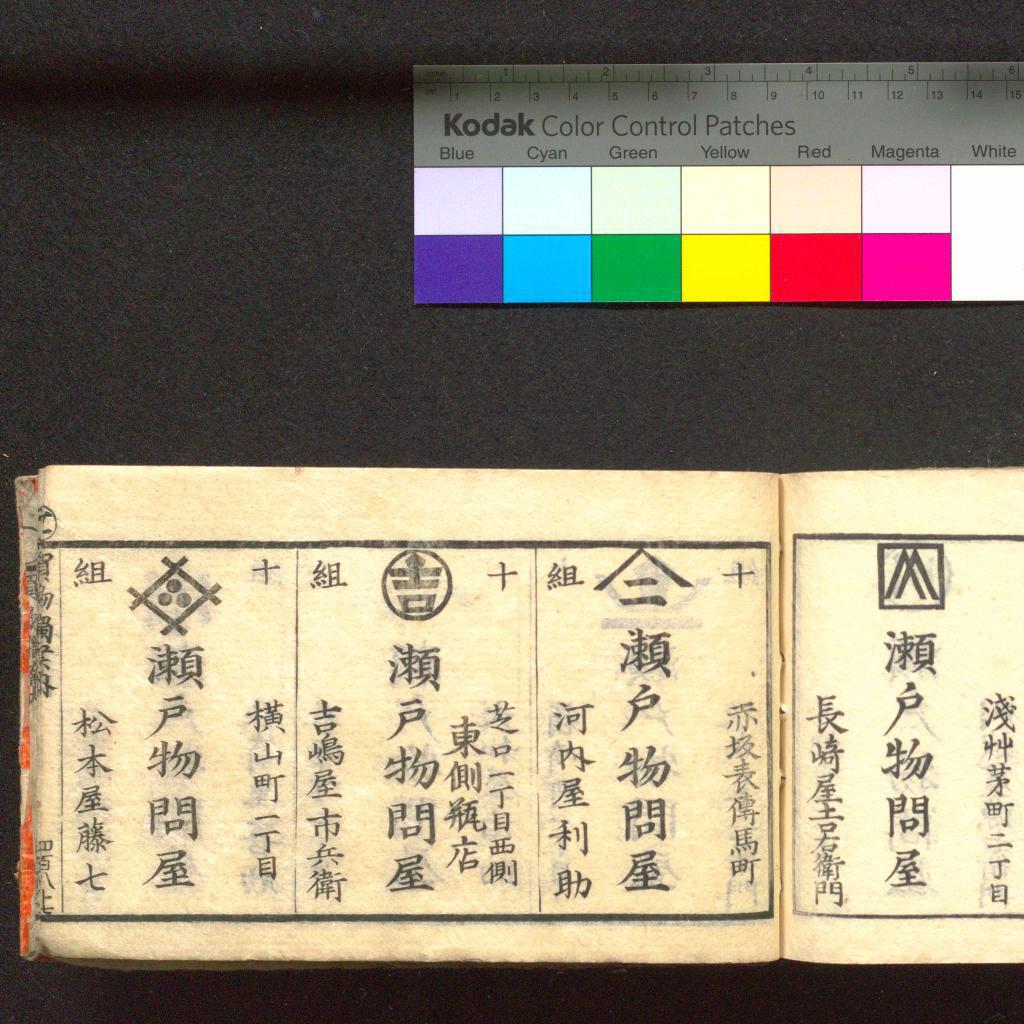 inches 1 2 3 4 5 6
cm 1 2 3 4 5 6 7 8 9 10 11 12 13 14 15
Kodak Color Control Patches
Blue Cyan Green Yellow Red Magenta White
淺艸茅町二丁目
瀬戸物問屋
長崎屋
衛門
十
組
赤坂表傳馬町
瀬戸物問屋
河内屋利助
十
吉
組
芝口一丁目西側
東側瓶店
瀬戸物問屋
吉嶋屋市兵衛
十
組
横山町一丁目
瀬戸物問屋
松本屋藤七